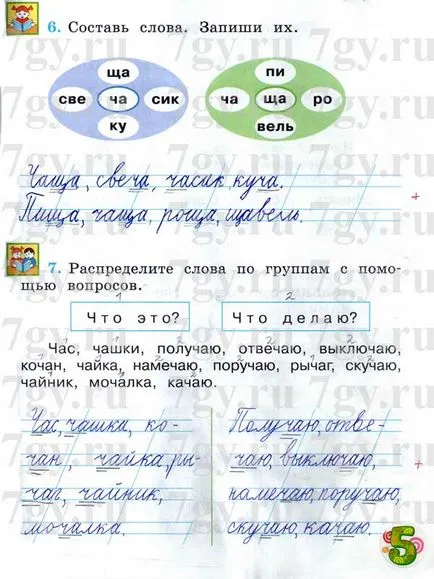 7gy.ru
6. Составь слова. Запиши их.
ща
све ча сик
ку
пи
ча ща ро
вель
Чаща, свеча, часик, куча.
Пища, чаща, роща, щавель.
7. Распределите слова по группам с помо-
щью вопросов.
1 2
Что это? Что делаю?
Час, чашки, получаю, отвечаю, выключаю,
кочан, чайка, намечаю, поручаю, рычаг, скучаю,
чайник, мочалка, качаю.
Час, чашка, ко-
чан, чайка, ры-
чаг, чайник,
мочалка.
Получаю, отве-
чаю, выключаю,
намечаю, поручаю,
скучаю, качаю.
5